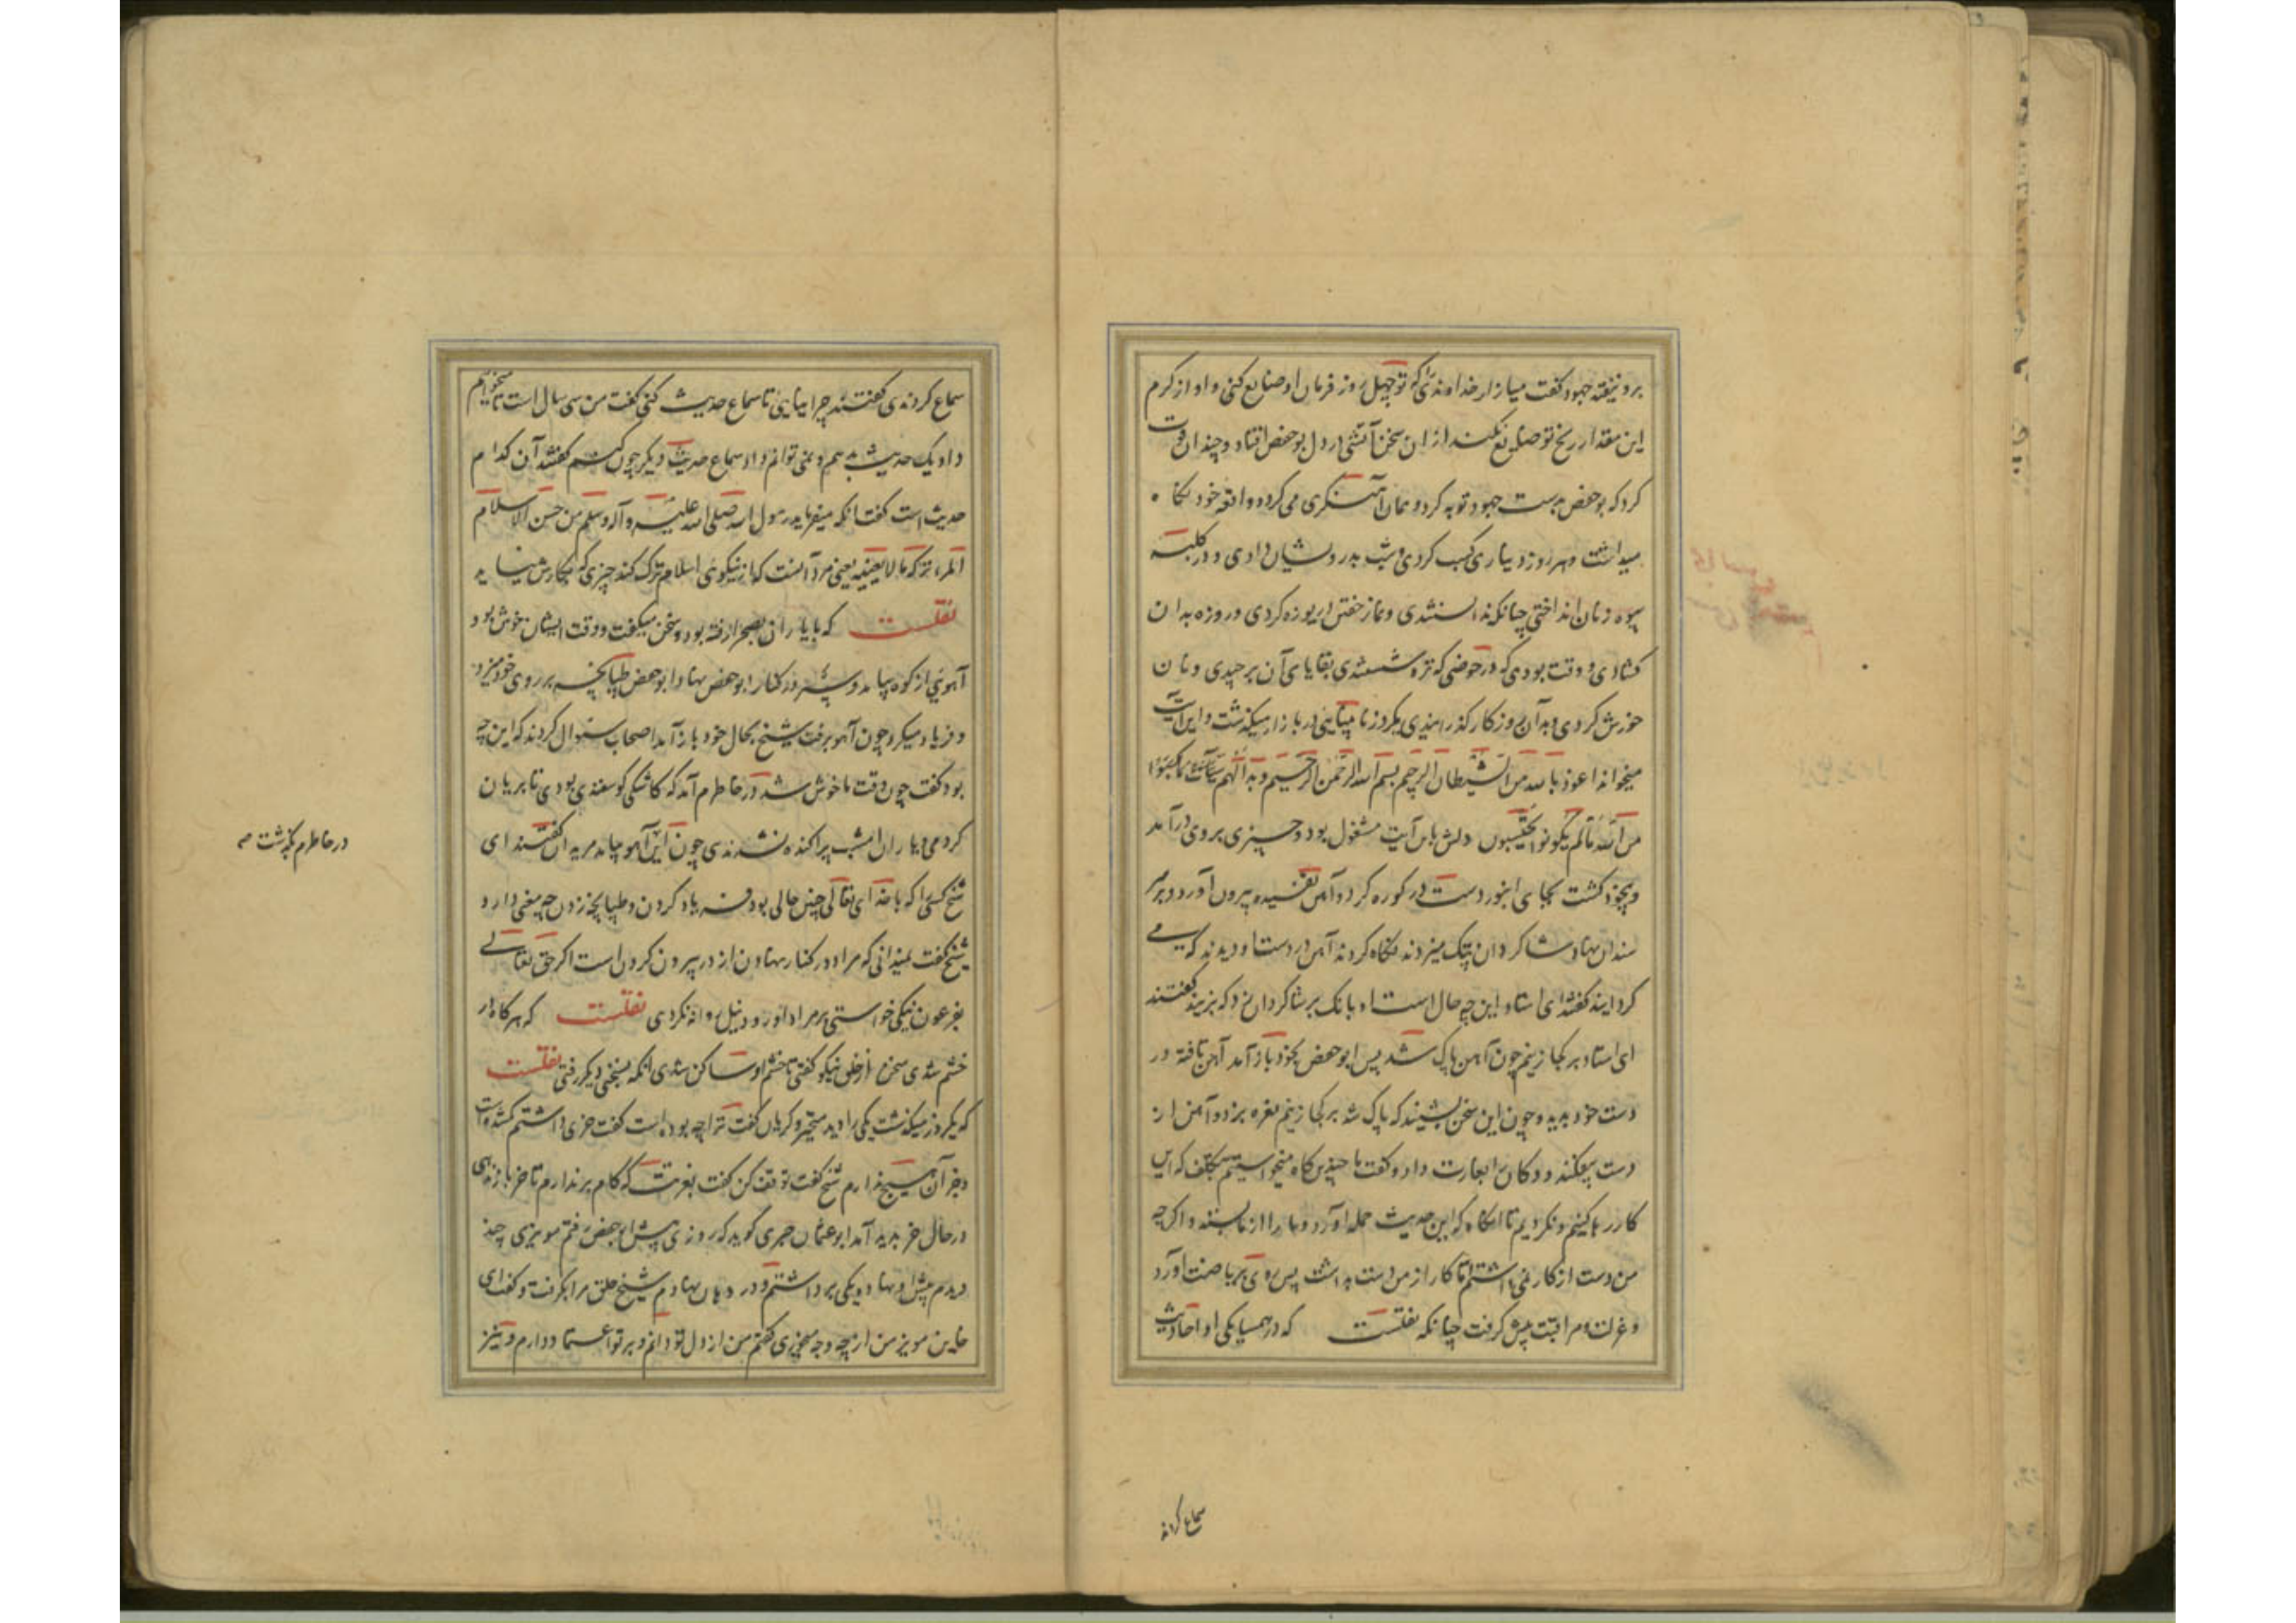 برو نیفته جهود گفت میازار خداوندی را که تو چهل روز فرمان او ضایع کنی و او از کرم
این مقدار رنج تو ضایع نکند ازین سخن آتشی در دل بوحفص افتاد و چندان قوت
کرد که بوحفص بدست جهود توبه کرد و همان آهنگری می کرد و واقعه خود نگاه
میداشت و هر روز دیناری کسب کردی و شب بدرویشان دادی و در کلیه
بیوه زنان انداختی چنانکه ندانستندی و نماز خفتن دریوزه کردی و روزه بدان
گشادی و وقت بودی که در حوضی که تره شستندی بقایای آن برچیدی و نان
خورش کردی و بدان روزگار گذرانیدی یکروز نابینایی در بازار میگذشت و این آیت
میخواند اعوذ بالله من الشیطان الرجیم بسم الله الرحمن الرحیم وبدا لهم سیآت ما کسبوا
من الله ما لم یکونوا یحتسبون دلش باین آیت مشغول بود و چیزی بروی درآمد
و بیخود گشت بجای انبور دست در کوره کرد و آهن تفسیده بیرون آورد و بر
سندان نهاد شاگردان پتک میزدند نگاه کردند آهن در دست او دیدند که می
گردانید گفتند ای استاد این چه حال است او بانک بر شاگردان زد که بزنید گفتند
ای استاد بر کجا زنیم چون آهن پاک شد پس ابوحفص بخود باز آمد آهن تافته در
دست خود بدید و چون این سخن بشنید که پاک شد بر کجا زنیم نعره بزد و آهن از
دست بیفکند و دکان را بغارت داد و گفت ما چندین گاه میخواستیم بتکلف که این
کار رها کنیم و نکردیم تا آنگاه که این حدیث حمله آورد و ما را از ما بستد و اگر چه
من دست از کار می داشتم تا کار از من دست بداشت پس روی بریاضت آورد
و عزلت و مراقبت پیش گرفت چنانکه نقلست که در همسایگی او احادیث
سماع کردند
سماع کردندی گفتند چرا نیایی تا سماع حدیث کنی گفت من سی سال است تا میخواهیم
داد یک حدیث بدهم و نمی توانم داد سماع حدیث دیگر چون کنم گفتند آن کدام
حدیث است گفت آنکه میفرماید رسول الله صلی الله علیه وآله وسلم من حسن الاسلام
المرء ترکه ما لا یعنیه یعنی مرد آنست که از نیکوی اسلام ترک کند چیزی که بکارش نیاید
نقلست که با یاران بصحرا رفته بود و سخن میگفت و وقت ایشان خوش بود
آهویی از کوه بیامد و سر در کنار ابوحفص نهاد ابوحفص طپانچه بر روی خود میزد
و فریاد میکرد چون آهو برفت شیخ بحال خود باز آمد اصحاب سئوال کردند که این چه
بود گفت چون وقت ما خوش شد در خاطرم آمد که کاشکی گوسفندی بودی تا بریان
کردمی و یاران امشب پراکنده نشدندی چون این آهو بیامد مریدان گفتند ای
در خاطرم بگذشت
شیخ کسی را که با خدای تعالی چنین حالی بود فریاد کردن و طپانچه زدن چه معنی دارد
شیخ گفت نمیدانی که مراد در کنار نهادن از در بیرون کردن است اگر حق تعالی
بفرعون نیکی خواستی بر مراد او رود نیل روانه نکردی نقلست که هرگاه در
خشم شدی سخن از خلق نیکو گفتی تا خشم او ساکن شدی آنگه بسخنی دیگر رفتی نقلست
که یکروز میگذشت یکی را دید متحیر و گریان گفت ترا چه بوده است گفت خری داشتم گم شده است
و جز آن هیچ ندارم شیخ گفت توقف کن گفت بعزتت که گام بر ندارم تا خر باز ندهی
در حال خر پدید آمد ابوعثمان حیری گوید که روزی پیش ابوحفص رفتم مویزی چند
دیدم پیش او نهاده یکی برداشتم و در دهان نهادم شیخ حلق مرا بگرفت و گفت ای
خاین مویز من از چه وجه بخوردی گفتم من از دل تو دانم و بر تو اعتماد دارم و نیز